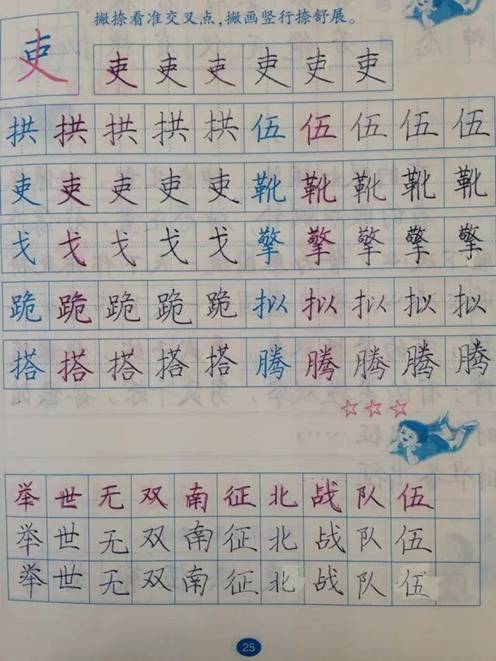 撇捺看准交叉点,撇画竖行捺舒展。
吏 吏 吏 吏 吏 吏 吏
拱 拱 拱 拱 拱 伍 伍 伍 伍 伍
吏 吏 吏 吏 吏 靴 靴 靴 靴 靴
戈 戈 戈 戈 戈 擎 擎 擎 擎 擎
跪 跪 跪 跪 跪 拟 拟 拟 拟 拟
搭 搭 搭 搭 搭 腾 腾 腾 腾 腾
举世无双南征北战队伍
举世无双南征北战队伍
举世无双南征北战队伍
25